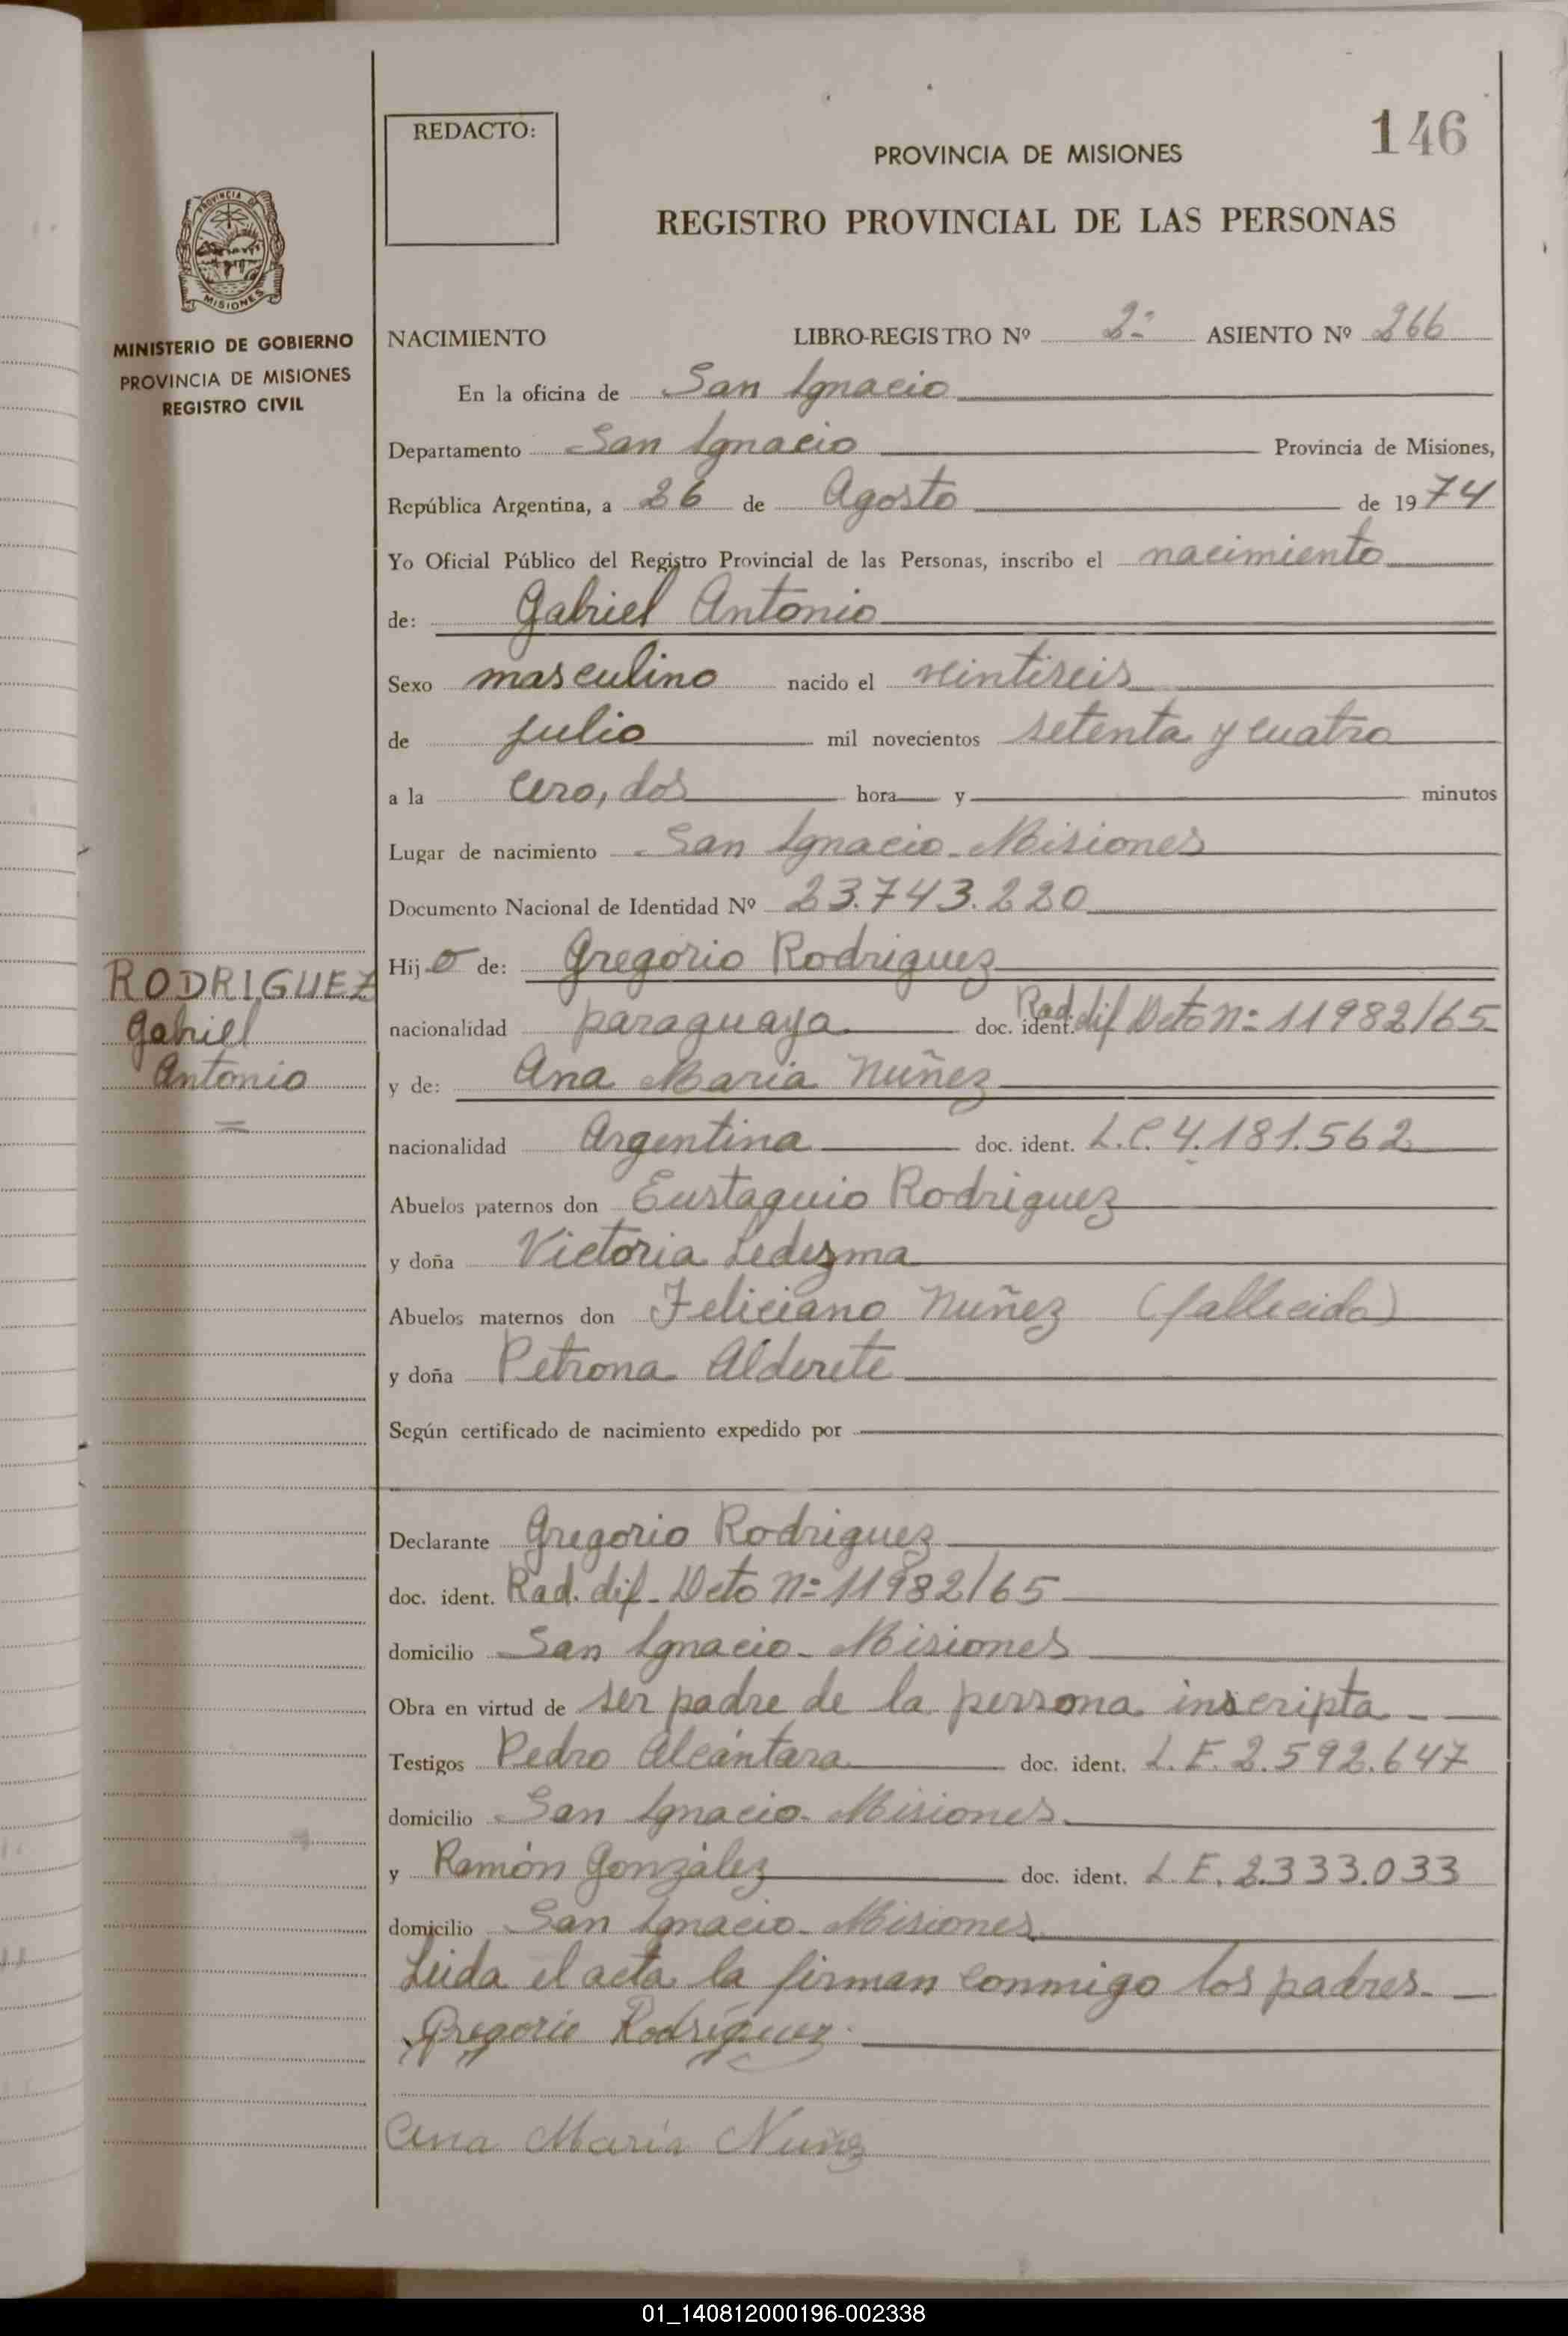 REDACTO:
146
PROVINCIA DE MISIONES
REGISTRO PROVINCIAL DE LAS PERSONAS
PROVINCIA DE
MISIONES
MINISTERIO DE GOBIERNO
PROVINCIA DE MISIONES
REGISTRO CIVIL
NACIMIENTO LIBRO-REGISTRO Nº 2º ASIENTO Nº 266
En la oficina de San Ignacio
Departamento San Ignacio Provincia de Misiones,
República Argentina, a 26 de Agosto de 1974
Yo Oficial Público del Registro Provincial de las Personas, inscribo el nacimiento
de: Gabriel Antonio
Sexo masculino nacido el veintiseis
de julio mil novecientos setenta y cuatro
a la cero, dos hora y minutos
Lugar de nacimiento San Ignacio - Misiones
Documento Nacional de Identidad Nº 23.743.220
RODRIGUEZ
Gabriel
Antonio
Hijo de: Gregorio Rodriguez
nacionalidad paraguaya doc. ident. Rad. dif Dcto nº 11982/65
y de: Ana Maria Nuñez
nacionalidad Argentina doc. ident. L.C. 4.181.562
Abuelos paternos don Eustaquio Rodriguez
y doña Victoria Ledezma
Abuelos maternos don Feliciano Nuñez (fallecido)
y doña Petrona Alderete
Según certificado de nacimiento expedido por
Declarante Gregorio Rodriguez
doc. ident. Rad. dif - Dcto nº 11982/65
domicilio San Ignacio - Misiones
Obra en virtud de ser padre de la persona inscripta - -
Testigos Pedro Alcántara doc. ident. L.E. 2.592.647
domicilio San Ignacio - Misiones
y Ramón González doc. ident. L.E. 2.333.033
domicilio San Ignacio - Misiones
Leida el acta la firman conmigo los padres. -
Gregorio Rodríguez
Ana María Nuñez
01_140812000196-002338